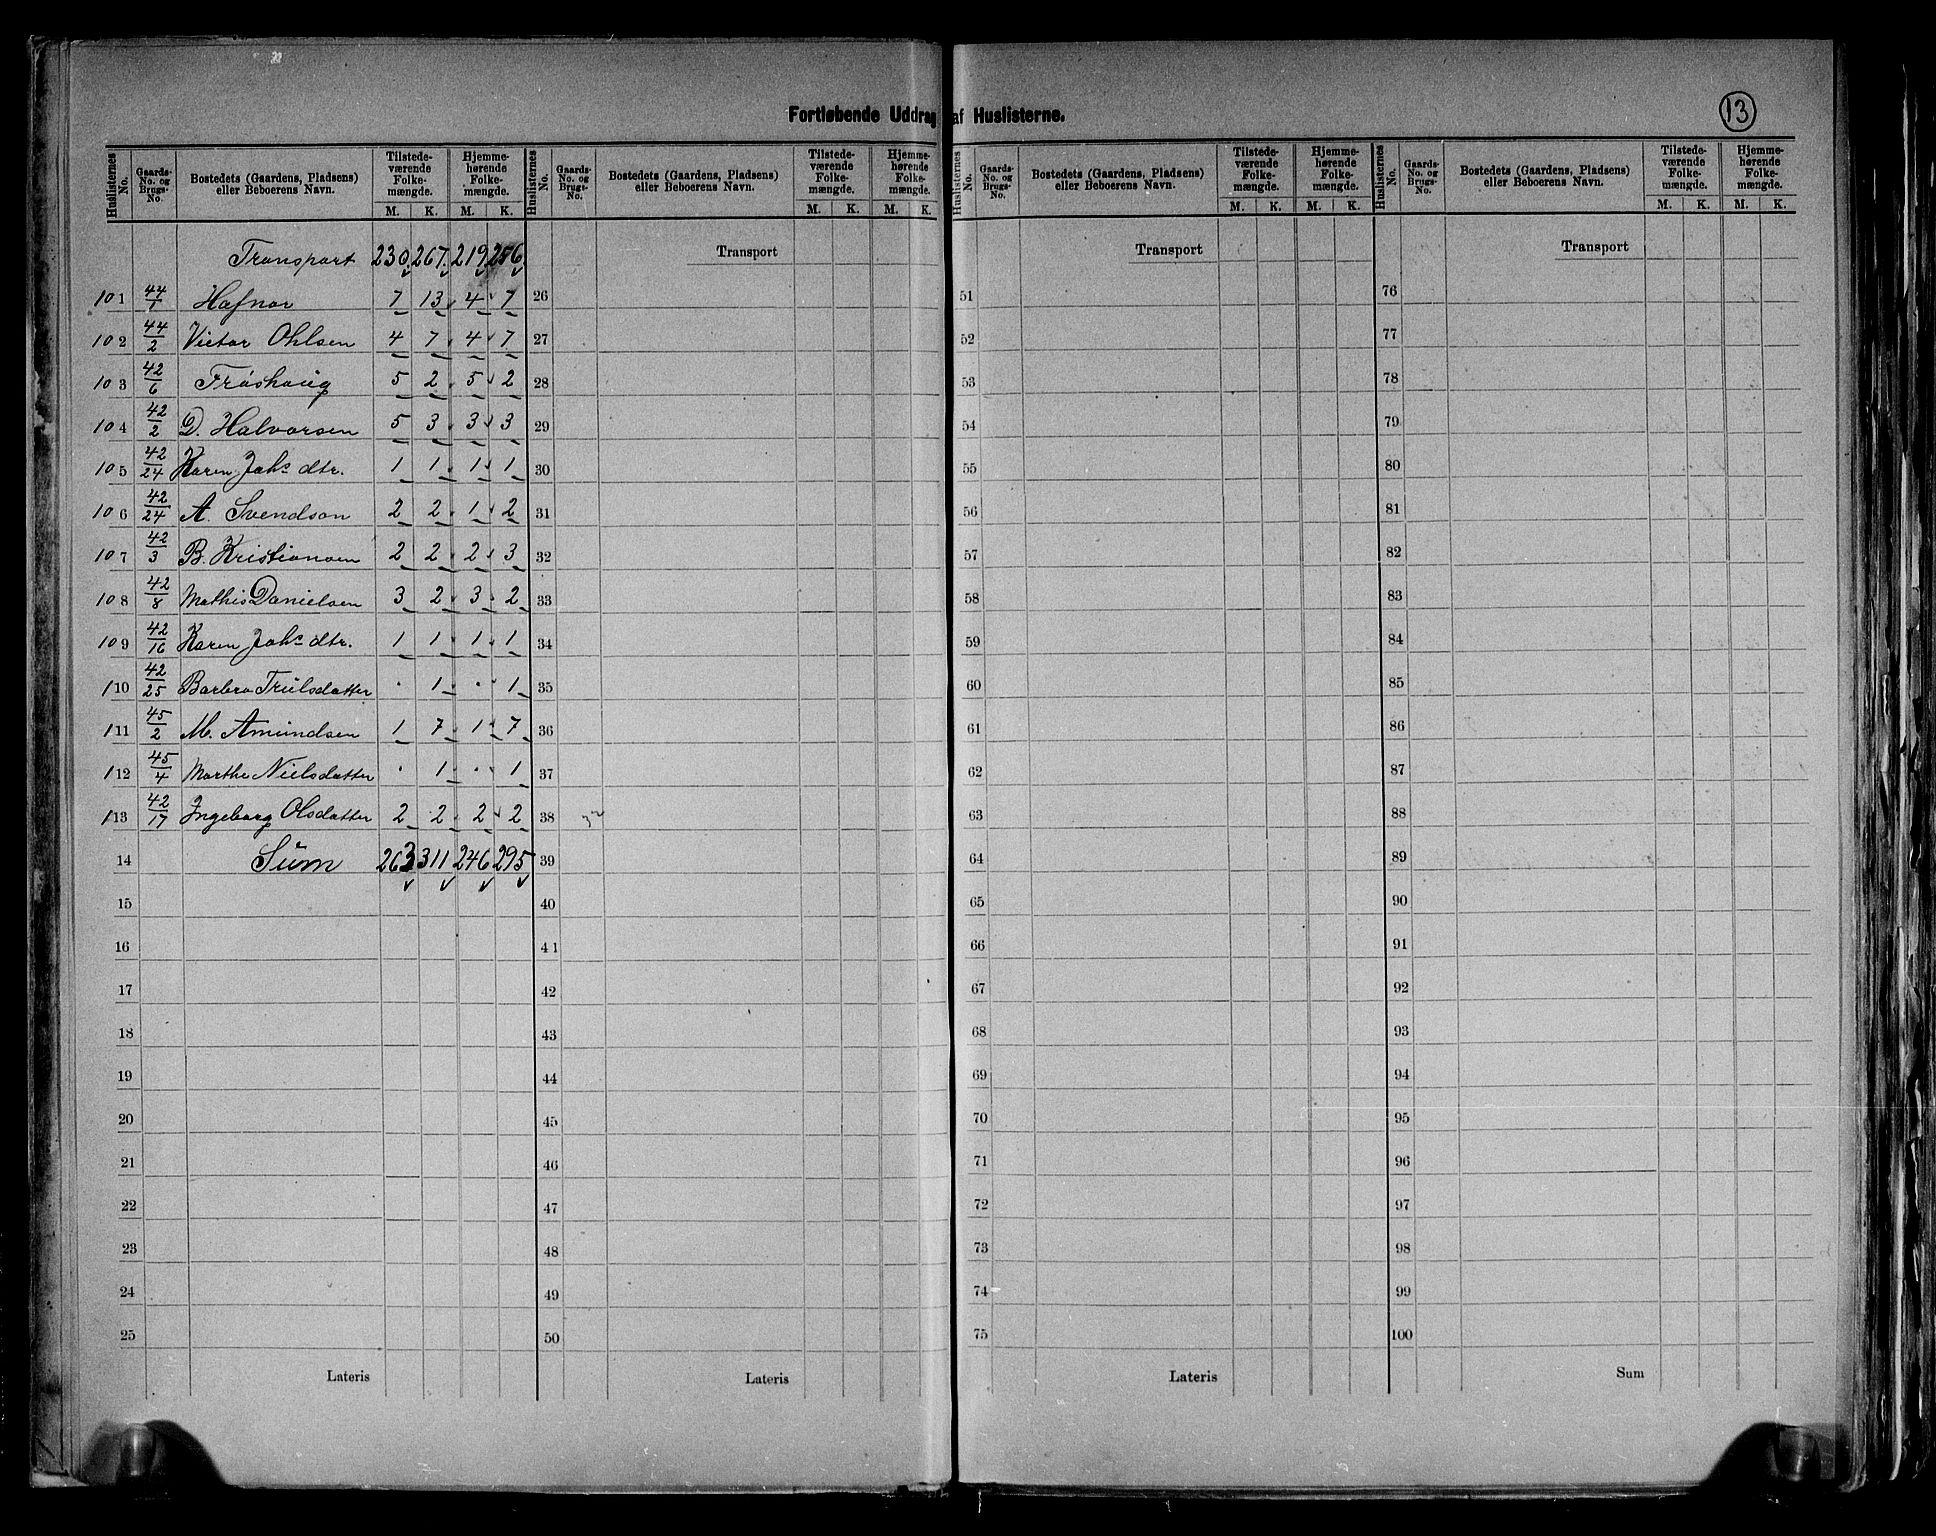 Fortløbende Uddrag af Huslisterne.
13
Huslisternes No. Gaards-No. og Brugs-No. Bostedets (Gaardens, Pladsens) eller Beboerens Navn. Tilstedeværende Folkemængde. M. K. Hjemmehørende Folkemængde. M. K.
Huslisternes No. Gaards-No. og Brugs-No. Bostedets (Gaardens, Pladsens) eller Beboerens Navn. Tilstedeværende Folkemængde. M. K. Hjemmehørende Folkemængde. M. K.
Huslisternes No. Gaards-No. og Brugs-No. Bostedets (Gaardens, Pladsens) eller Beboerens Navn. Tilstedeværende Folkemængde. M. K. Hjemmehørende Folkemængde. M. K.
Huslisternes No. Gaards-No. og Brugs-No. Bostedets (Gaardens, Pladsens) eller Beboerens Navn. Tilstedeværende Folkemængde. M. K. Hjemmehørende Folkemængde. M. K.
Transport 230 267 219 256 Transport Transport Transport
101 44/1 Hafnor 7 13 4 7 26 51 76
102 44/2 Victor Ohlsen 4 7 4 7 27 52 77
103 42/6 Fröshoug 5 2 5 2 28 53 78
104 42/2 D. Halvorsen 5 3 3 3 29 54 79
105 42/24 Karen Johs dtr. 1 1 1 1 30 55 80
106 42/24 A. Svendson 2 2 1 2 31 56 81
107 42/3 B. Kristiansen 2 2 2 3 32 57 82
108 42/8 Mathis Danielsen 3 2 3 2 33 58 83
109 42/16 Karen Johs dtr. 1 1 1 1 34 59 84
110 42/25 Barbro Trulsdatter . 1 . 1 35 60 85
111 45/2 M. Amundsen 1 7 1 7 36 61 86
112 45/4 Marthe Nielsdatter . 1 . 1 37 62 87
113 42/17 Ingeborg Olsdatter 2 2 2 2 38 63 88
14 Sum 263 311 246 295 39 64 89
15 40 65 90
16 41 66 91
17 42 67 92
18 43 68 93
19 44 69 94
20 45 70 95
21 46 71 96
22 47 72 97
23 48 73 98
24 49 74 99
25 50 75 100
Lateris Lateris Lateris Sum